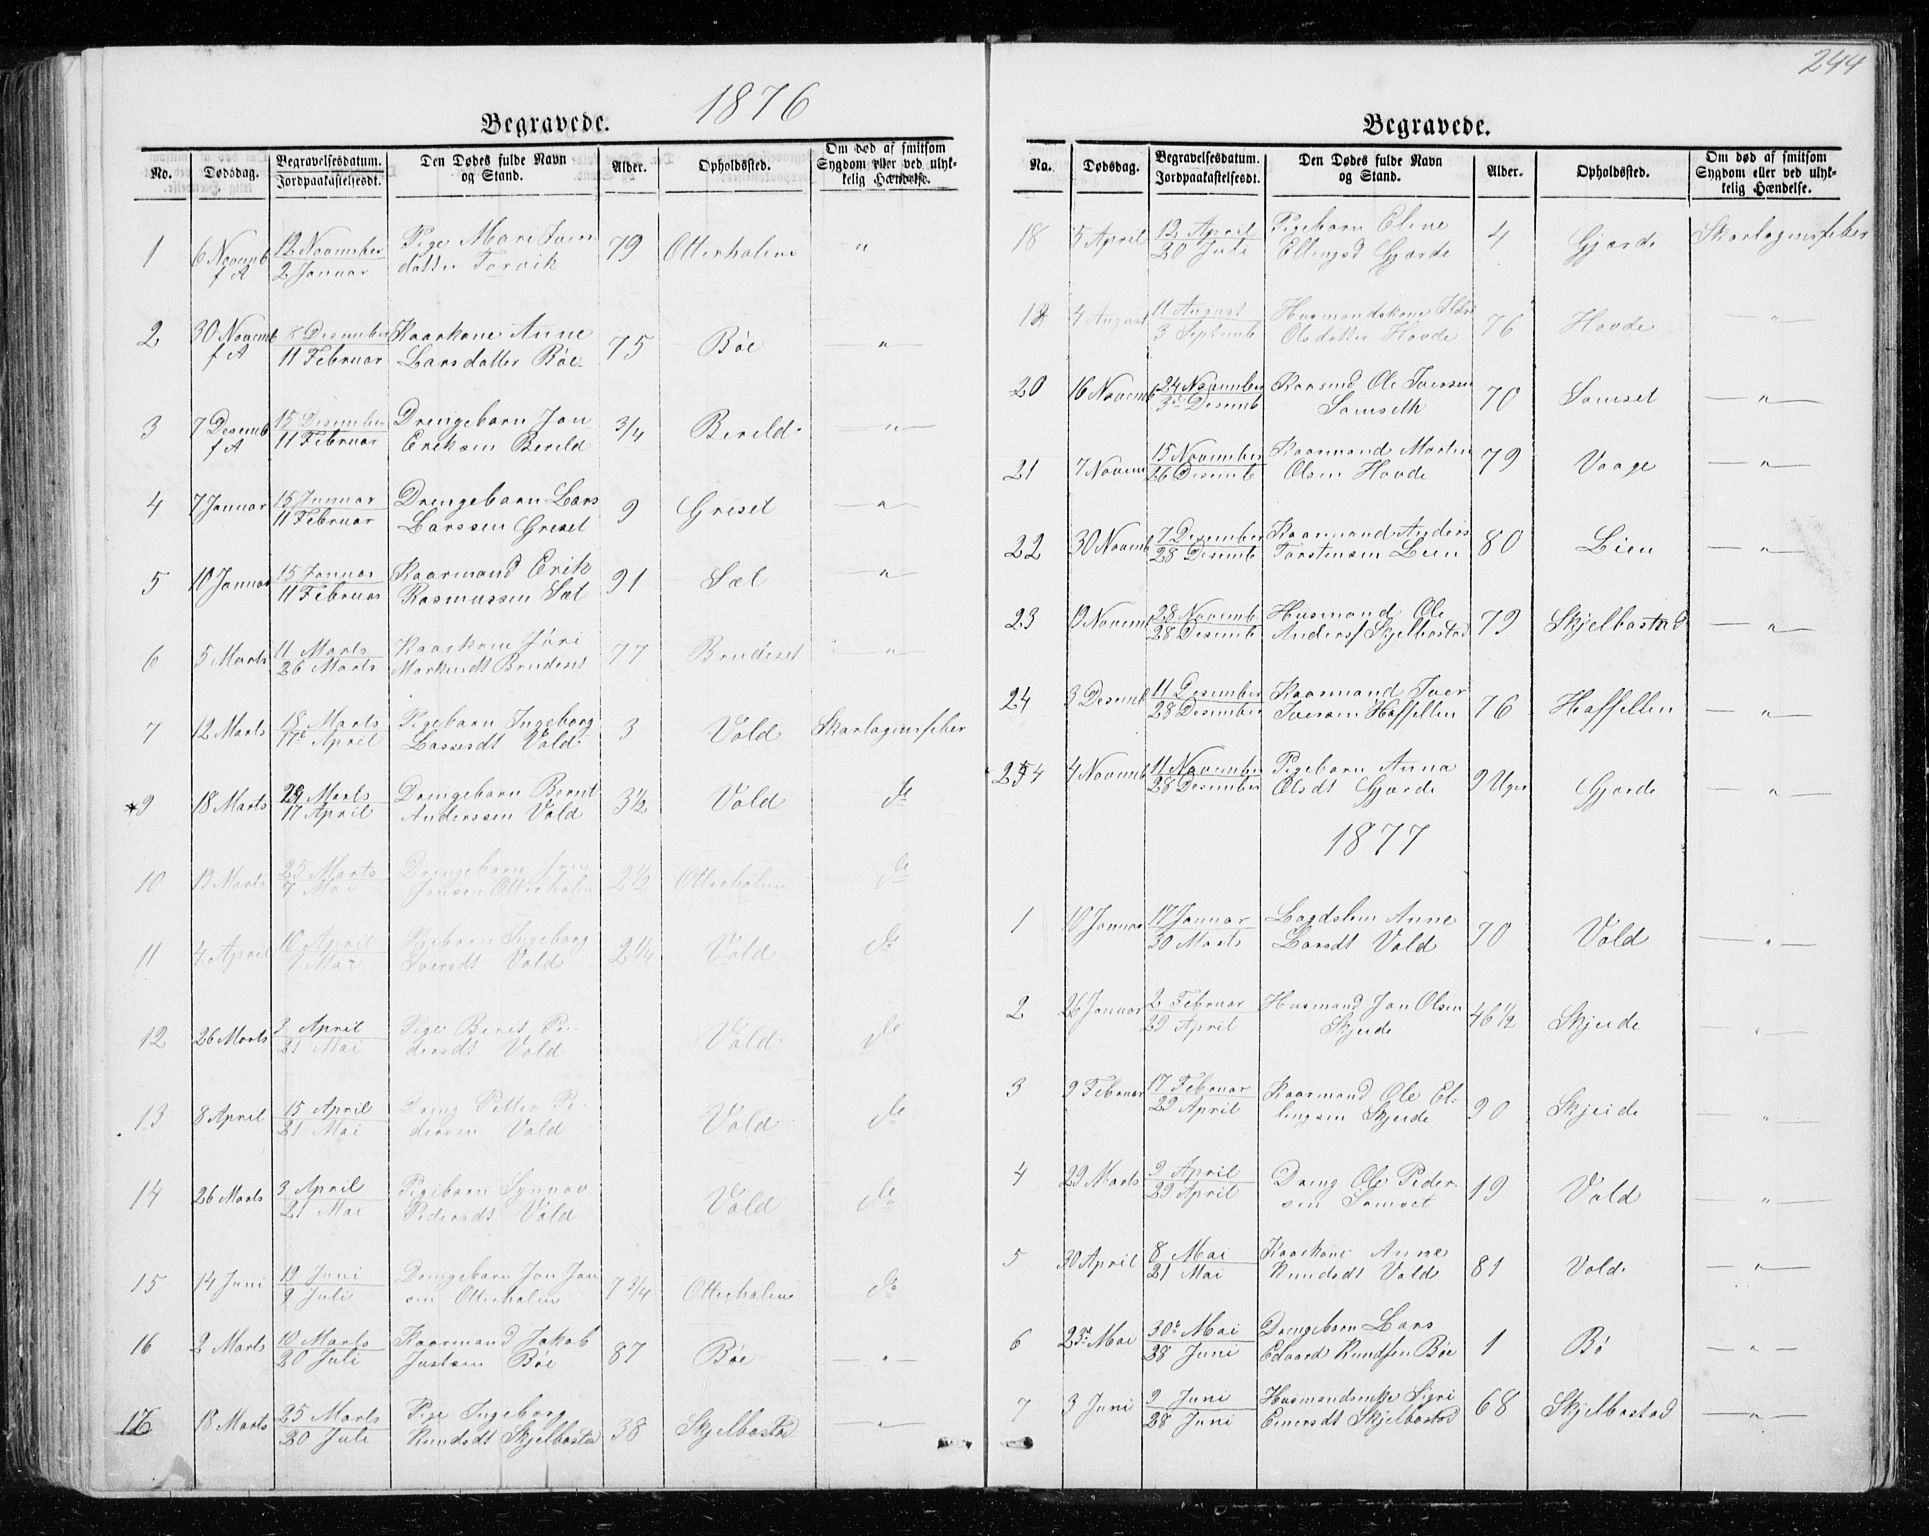 244
1876
Begravede.
No. Dødsdag. Begravelsesdatum. Jordpaakastelsesdt. Den Dødes fulde Navn og Stand. Alder. Opholdssted. Om død af smitsom Sygdom eller ved ulykkelig Hændelse.
1 6 Novemb f A 12 November 2 Januar Pige Mari Iver
datter Torvik 79 Otterholm "
2 30 Novemb f A 8 Desember 11 Februar Kaarkone Anne
Larsdatter Böe 75 Böe — " —
3 7 Desemb f A 15 Desember 11 Februar Drengebarn Jon
Eriksen Berild 3/4 Berild — " —
4 7 Januar 15 Januar 11 Februar Drengebarn Lars
Larssen Griset 9 Griset — " —
5 10 Januar 15 Januar 11 Februar Kaarmand Erik
Rasmussen Sæt 91 Sæt — " —
6 5 Marts 11 Marts 26 Marts Kaarkone Jöri
Markusdt Brudeset 77 Brudeset — " —
7 12 Marts 18 Marts 17de April Pigebarn Ingeborg
Lassesdt Vold 3 Vold Skarlagensfeber
9 18 Marts 24 Marts 17 April Drengebarn Bernt
Anderssen Vold 3½ Vold do
10 19 Marts 25 Marts 7 Mai Drengebarn Jon
Jonsen Otterholm 2½ Otterholm do
11 4 April 10 April 7 Mai Pigebarn Ingeborg
Iversdt Vold 2¼ Vold do
12 26 Marts 3 April 21 Mai Pige Berit Pe-
dersdt Vold Vold do
13 8 April 15 April 21 Mai Dreng Petter Pe-
dersen Vold Vold do
14 26 Marts 3 April 21 Mai Pigebarn Synnöv
Pedersdt Vold Vold do
15 14 Juni 19 Juni 9 Juli Drengebarn Jon Jon
sen Otterholm 7¾ Otterholm do
16 2 Marts 10 Marts 20 Juli Kaarmand Jakob
Justsen Böe 87 Böe — " —
17 18 Marts 25 Marts 20 Juli Pige Ingeborg
Knudsdt Skjelbostad 38 Skjelbostad — " —
Begravede.
No. Dødsdag. Begravelsesdatum. Jordpaakastelsesdt. Den Dødes fulde Navn og Stand. Alder. Opholdssted. Om død af smitsom Sygdom eller ved ulykkelig Hændelse.
18 5 April 12 April 20 Juli Pigebarn Eline
Ellingsd Gjerde 4 Gjerde Skarlagensfeber
4 August 11 August 3 Septemb Husmandskone
Olsdatter Hovde 76 Hovde — " —
20 16 Novemb 24 November 3de Desemb Kaarmd Ole Iverssen
Samseth 70 Samset — " —
21 7 Novem 15 November 26 Desemb Kaarmand Martin
Olsen Hovde 79 Vaage — " —
22 30 Novemb 7 Desember 28 Desemb Kaarmand Anders
Torstensen Lien 80 Lien — " —
23 19 Novemb 28 Novemb 28 Desemb Husmand Ole
Anders. Skjelbostad 79 Skjelbostad — " —
24 3 Desemb 11 Desember 28 Desember Kaarmand Iver
Iversen Hoffellen 76 Hoffellen — " —
25 4 Novemb 11 November 28 Desember Pigebarn Anna
Olsdt Gjerde 9 Uger Gjerde — " —
1877
1 10 Januar 17 Januar 30 Marts Lagdslem Anne
Larsdt Vold 70 Vold — " —
2 26 Januar 2 Februar 29 April Husmand Jon Olsen
Skjeide 46½ Skjeide "
3 9 Februar 17 Februar 29 April Kaarmand Ole El-
lingsen Skjeide 90 Skjeide — " —
4 29 Marts 9 April 29 April Dreng Ole Peder
sen Samset 19 Vold — " —
5 30 April 8 Mai 21 Mai Kaarkone Anne
Knudsdt Vold 81 Vold — " —
6 23de Mai 30te Mai 28 Juni Drengebarn Lars
Edvard Knudsen Böe 1 Bö — " —
7 3 Juni 9 Juni 28 Juni Husmandsenke Sigri
Einersdt Skjelbostad 68 Skjelbostad — " —